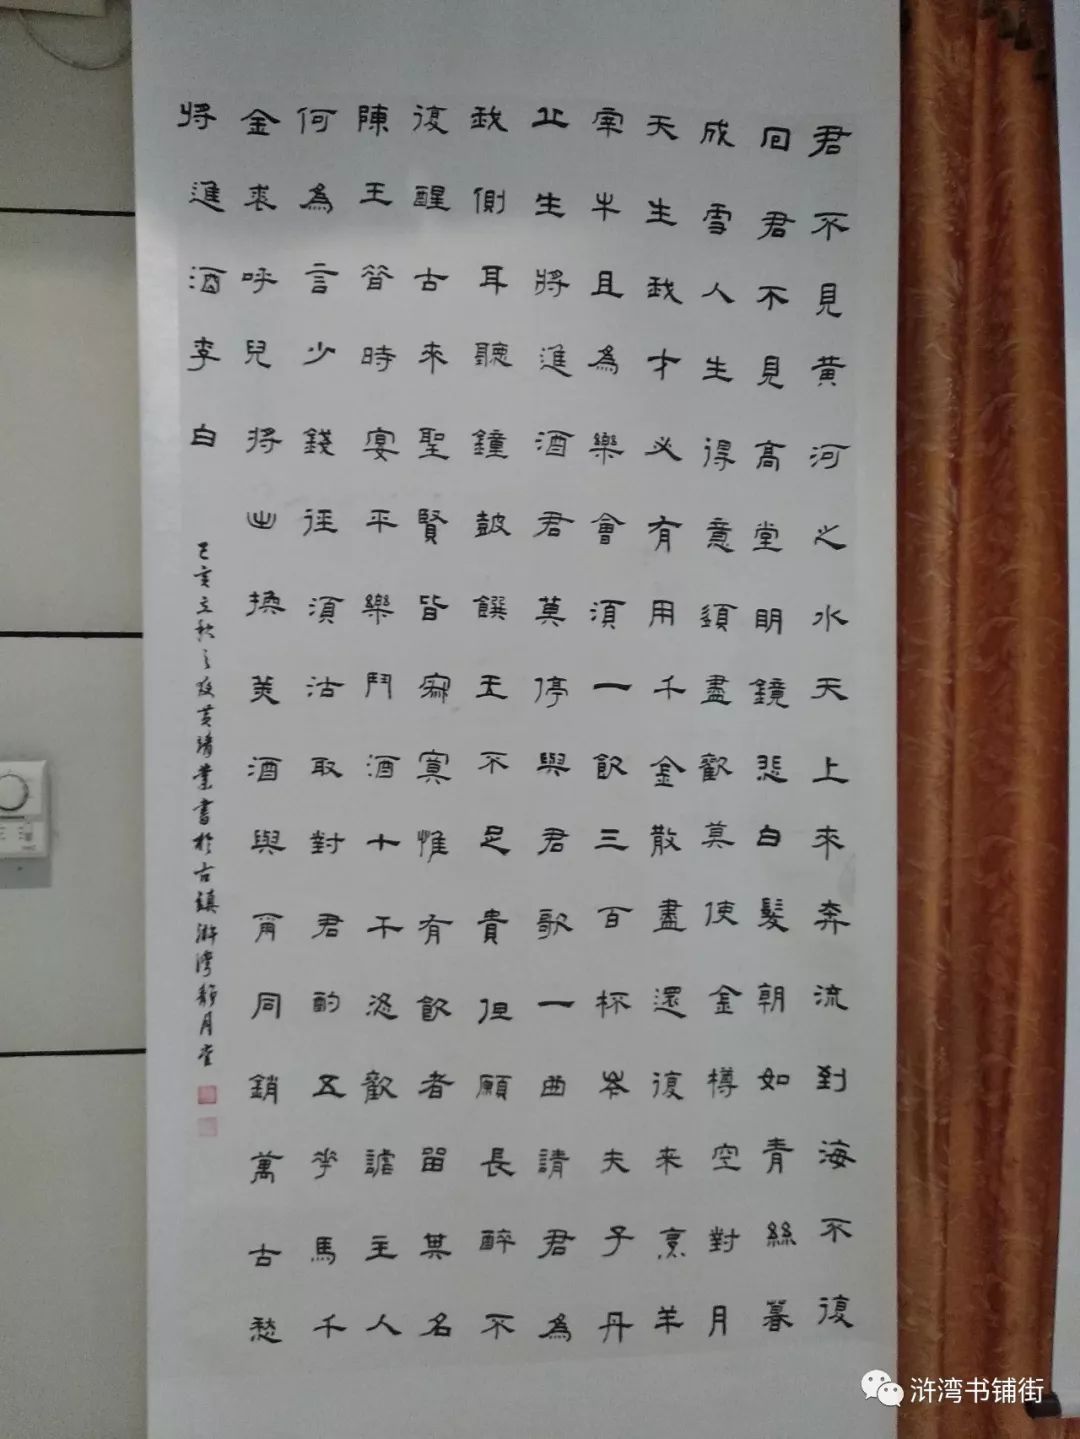 君不見黃河之水天上來奔流到海不復
回君不見高堂明鏡悲白髮朝如青絲暮
成雪人生得意須盡歡莫使金樽空對月
天生我才必有用千金散盡還復来烹羊
宰牛且為樂會須一飲三百杯岑夫子丹
丘生將進酒君莫停與君歌一曲請君為
我側耳聽鐘鼓饌玉不足貴但願長醉不
復醒古來聖賢皆寂寞惟有飲者留其名
陳王昔時宴平樂鬥酒十千恣歡謔主人
何為言少錢徑須沽取對君酌五花馬千
金裘呼兒將出換美酒與爾同銷萬古愁
將進酒李白
己亥立秋之後黃業書於古鎮滸灣靜月堂
浒湾书铺街